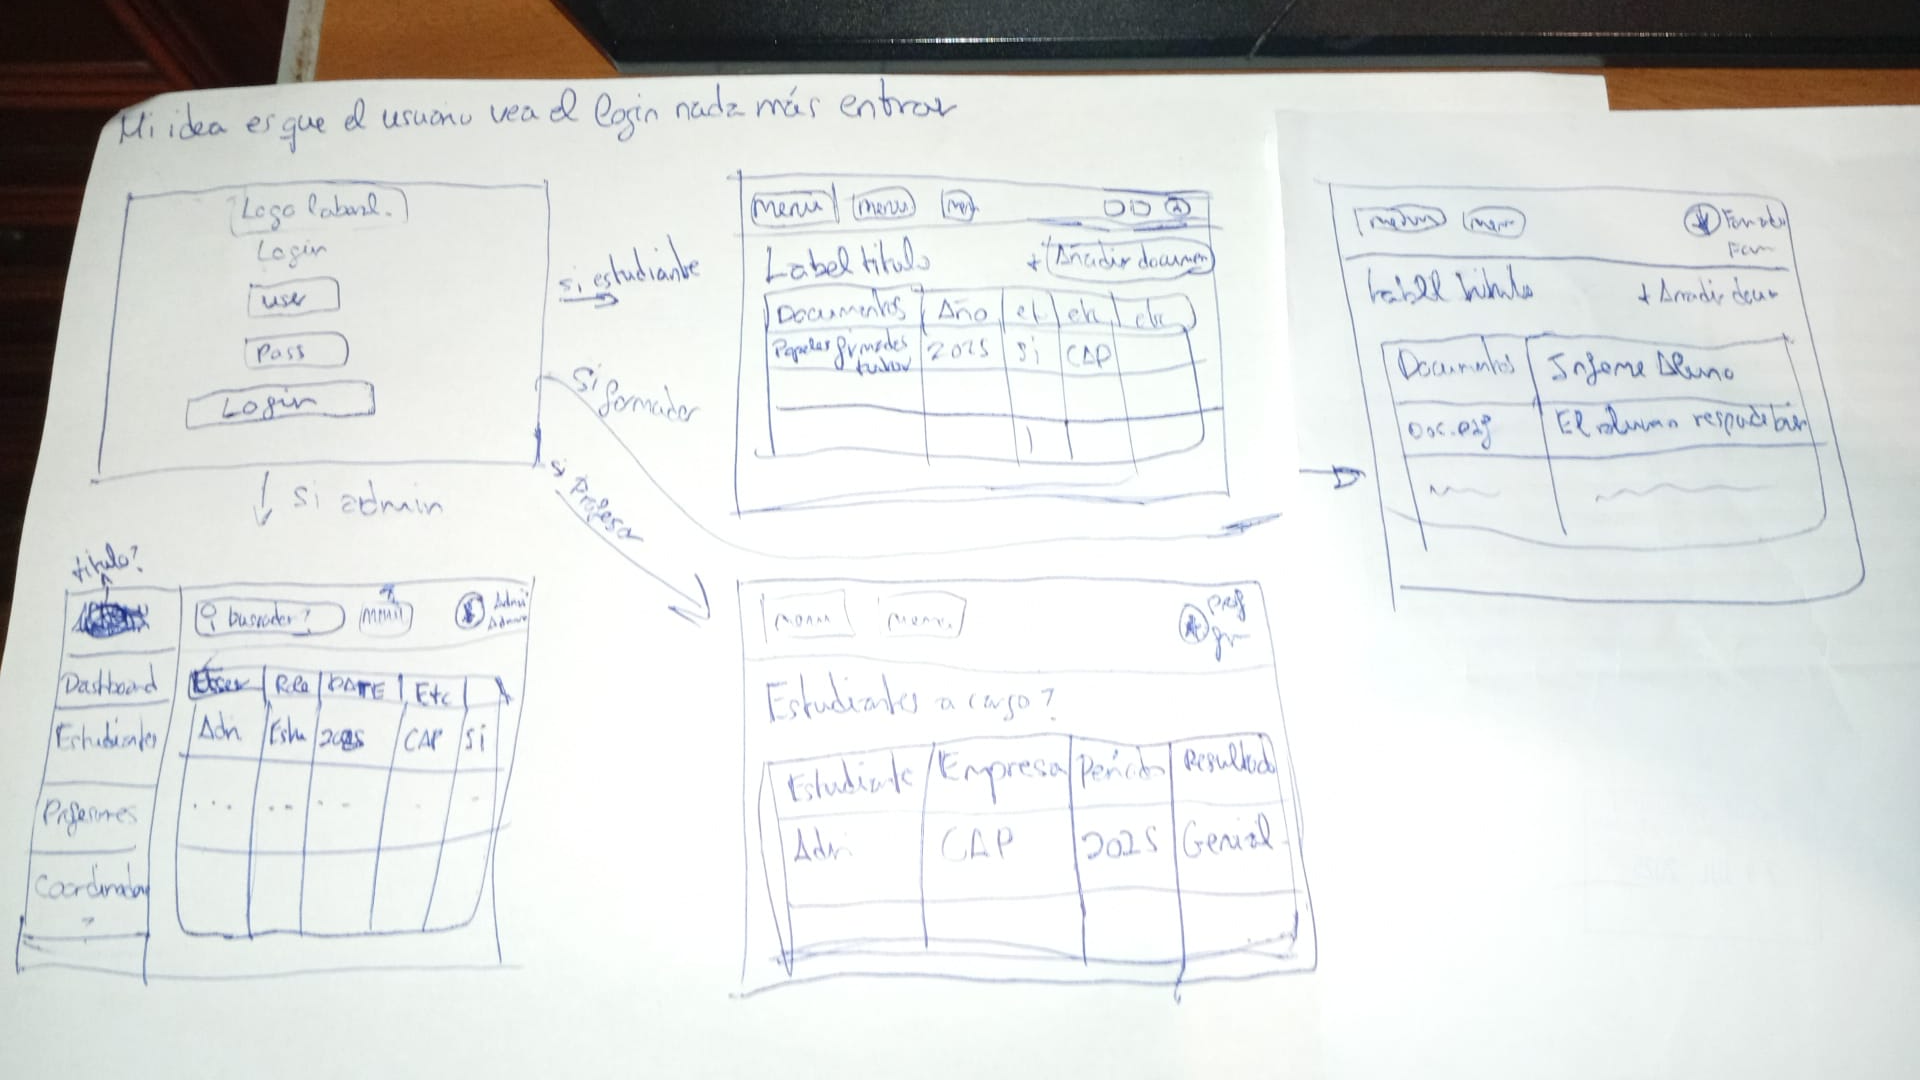 Mi idea es que el usuario vea el login nada más entrar
Logo laboral.
Login
user
Pass
Login
si estudiante
Si formador
si Profesor
si admin
menu menu
Label titulo + Añadir documen
Documentos Año et etc etc
Papeles firmados tutor 2025 Si CAP
menu menu
Label titulo + Añadir docu
Documentos Informe Alumno
Doc.ejg El alumno respode bien
titulo?
buscador? menu Admi
Admin
Dashboard
Estudiantes
Profesores
Coordinador
?
User Role DATE Etc
Adri Estu 2025 CAP Si
... ... ..
menu menu. prof
Estudiantes a cargo?
Estudiante Empresa Periodo Resultado
Adri CAP 2025 Genial